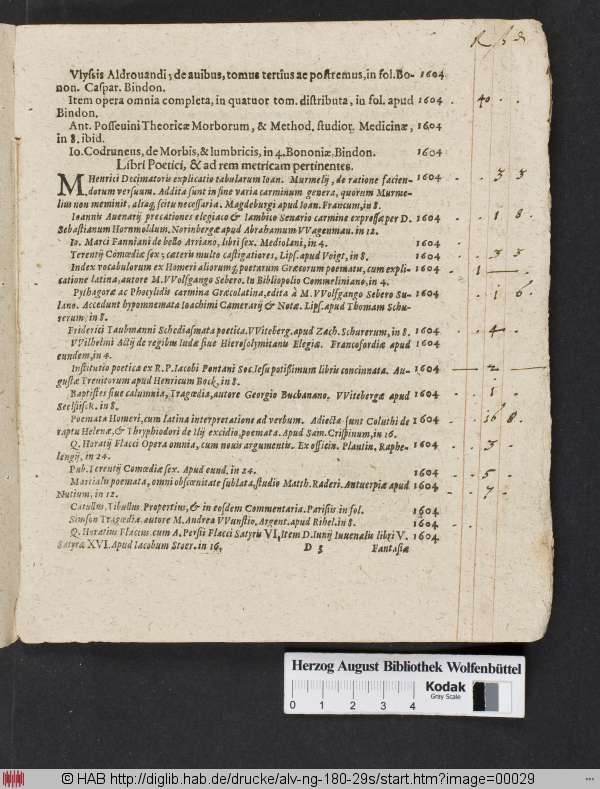 R ß ₰
Vlyssis Aldrouandi; de auibus, tomus tertius ac postremus, in fol. Bo- 1604
non. Caspar. Bindon.
Item opera omnia completa, in quatuor tom. distributa, in fol. apud 1604 - 40 - -
Bindon.
Ant. Posseuini Theoricæ Morborum, & Method. studior. Medicinæ, 1604
in 8. ibid.
Io. Codruneus, de Morbis, & lumbricis, in 4. Bononiæ, Bindon. 1604
Libri Poetici, & ad rem metricam pertinentes.
M. Henrici Decimatoris explicatio tabularum Ioan. Murmelij, de ratione facien- 1604 - - 3 3
dorum versuum. Addita sunt in fine varia carminum genera, quorum Murme-
lius non meminit, aliaq; scitu necessaria. Magdeburgi apud Ioan. Francum, in 8.
Ioannis Auenarij precationes elegiaco & Iambico Senario carmine expressæ per D. 1604 - - 1 8 -
Sebastianum Hornmoldum. Noribergæ apud Abrahamum VVagenmau. in 12.
Io. Marci Fanniani de bello Arriano, libri sex. Mediolani, in 4. 1604
Terentij Comœdiæ sex, cæteris multo castigatiores, Lips. apud Voigt, in 8. 1604 - - 3 3
Index vocabulorum ex Homeri aliorumq; poetarum Græcorum poematu, cum expli- 1604 - 1 —
catione latina, autore M. VVolfgango Sebero. In Bibliopolio Commeliniano, in 4.
Pythagoræ ac Phocylidis carmina Græcolatina, edita à M. VVolfgango Sebero Su- 1604 - - 1 6
lano. Accedunt hypomnemata Ioachimi Camerarij & Notæ. Lips. apud Thomam Schu-
rerum, in 8.
Friderici Taubmanni Schediasmata poetica. VViteberg. apud Zach. Schurerum, in 8. 1604 - - 4 -
VVilhelmi Actij de regibus Iudæ siue Hierosolymitanis Elegiæ. Francofordiæ apud 1604
eundem, in 4.
Institutio poetica ex R. P. Iacobi Pontani Soc. Iesu potissimum libris concinnata. Au- 1604 — 2 —
gustæ Treuirorum apud Henricum Bock, in 8.
Baptistes siue calumnia, Tragœdia, autore Georgio Buchanano. VVitebergæ apud 1604 - - 1 -
Seelfisch. in 8.
Poemata Homeri, cum latina interpretatione ad verbum. Adiecta sunt Coluthi de 1604 - - 16 8
raptu Helenæ, & Thryphiodori de Ilij excidio, poemata. Apud Sam. Crispinum, in 16.
Q. Horatij Flacci Opera omnia, cum nouis argumentis. Ex officin. Plantin. Raphe- 1604 - - 3 -
lengij, in 24.
Pub. Terentij Comœdiæ sex. Apud eund. in 24. 1604 - - 5 -
Martialis poemata, omni obscœnitate sublata, studio Matth. Raderi. Antuerpiæ apud 1604 - - 7 -
Nutium, in 12.
Catullus, Tibullus Propertius, & in eosdem Commentaria. Parisiis in fol. 1604
Simson Tragœdia, autore M. Andrea VVunstio, Argent. apud Rihel. in 8. 1604
Q. Horatius Flaccus cum A. Persii Flacci Satyris VI, Item D. Iunij Iuuenalis libri V. 1604
Satyræ XVI. Apud Iacobum Stoer. in 16.
D 3 Fantasiæ
Herzog August Bibliothek Wolfenbüttel
0 1 2 3 4
Kodak
Gray Scale
© HAB http://diglib.hab.de/drucke/alv-ng-180-29s/start.htm?image=00029